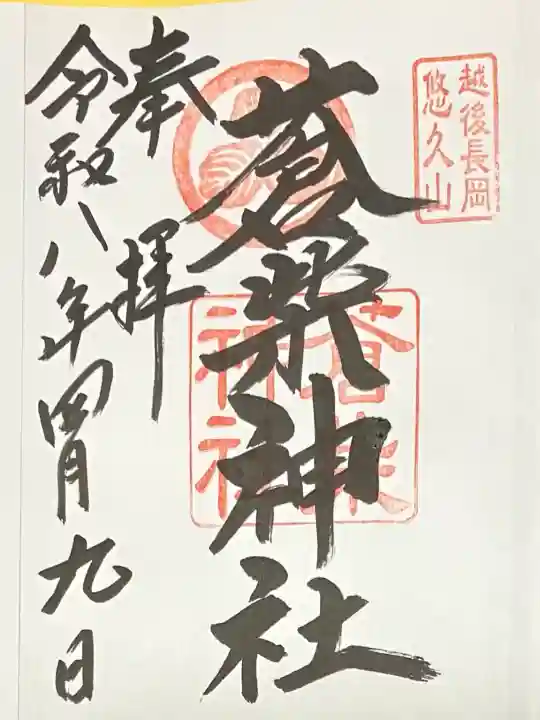 越後長岡
悠久山
蒼柴神社
蒼柴神社
奉拝
令和八年四月九日